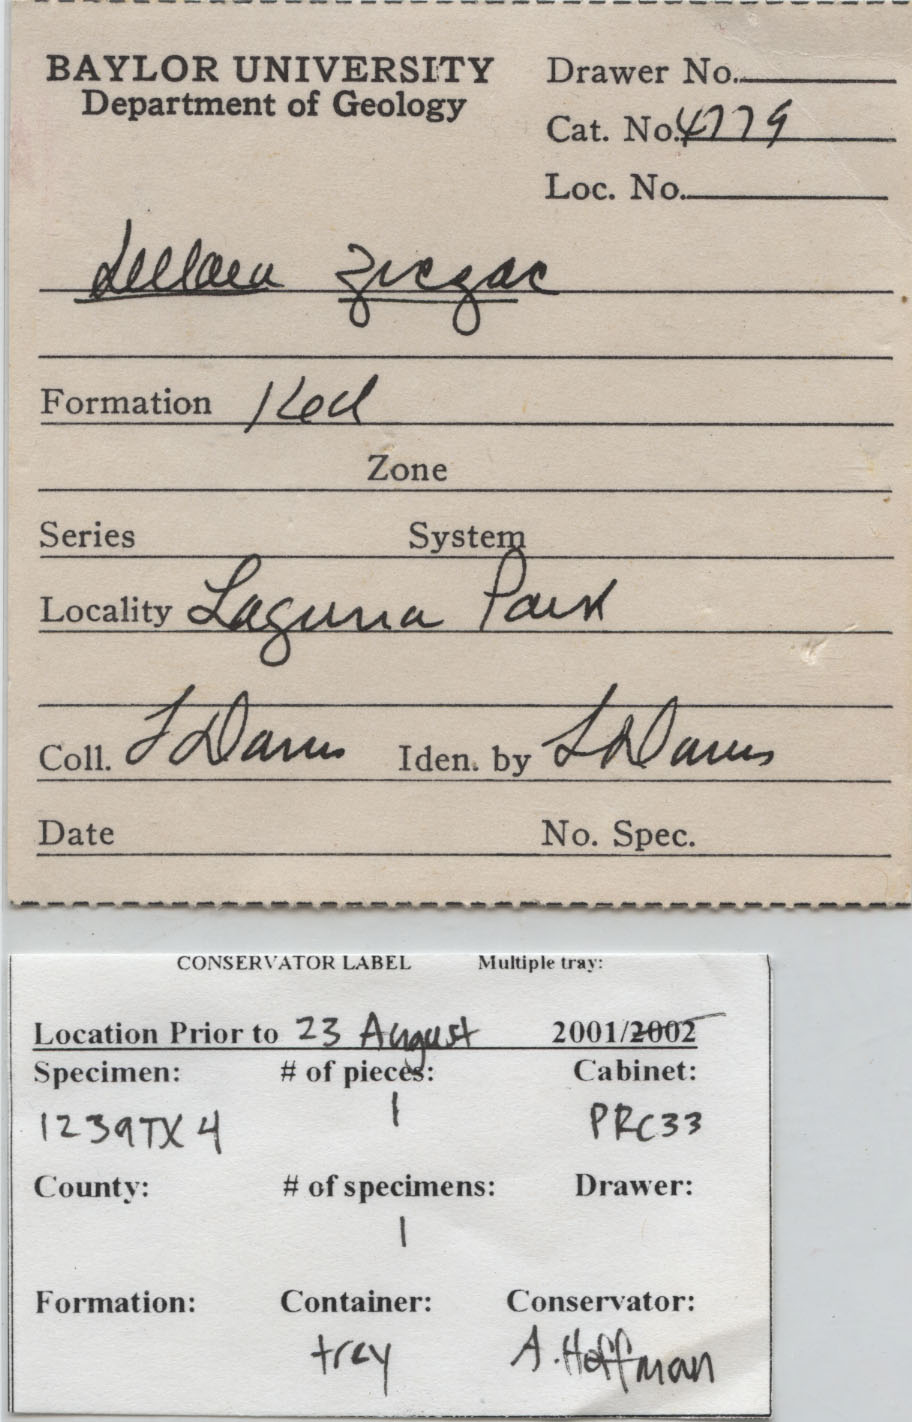 BAYLOR UNIVERSITY
Department of Geology
Drawer No.
Cat. No. 4779
Loc. No.
ziczac
Formation Ked
Zone
Series System
Locality Laguna Park
Coll. L Davis Iden. by L Davis
Date No. Spec.
CONSERVATOR LABEL Multiple tray:
Location Prior to 23 August 2001/2002
Specimen: # of pieces: Cabinet:
1239TX4 1 PRC33
County: # of specimens: Drawer:
1
Formation: Container: Conservator:
tray A. Hoffman